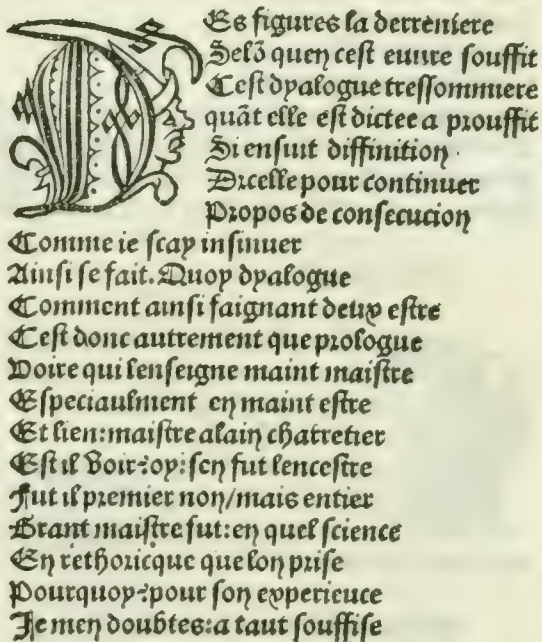 DEs figures la derreniere
Selõ quen cest euure souffit
Cest dyalogue tressommiere
quãt elle est dictee a prouffit
Si ensuit diffinition.
Dicelle pour continuer
Propos de consecucion
Comme ie scay insinuer
Ainsi se fait. Quoy dyalogue
Comment ainsi faignant deux estre
Cest donc autrement que prologue
Voire qui lenseigne maint maistre
Especiaulment en maint estre
Et lieu: maistre alain chatretier
Est il voir: oy: sen fut lencestre
Fut il premier non/mais entier
Grant maistre fut: en quel science
En rethoricque que lon prise
Pourquoy: pour son experieuce
Je men doubtes: a taut souffise